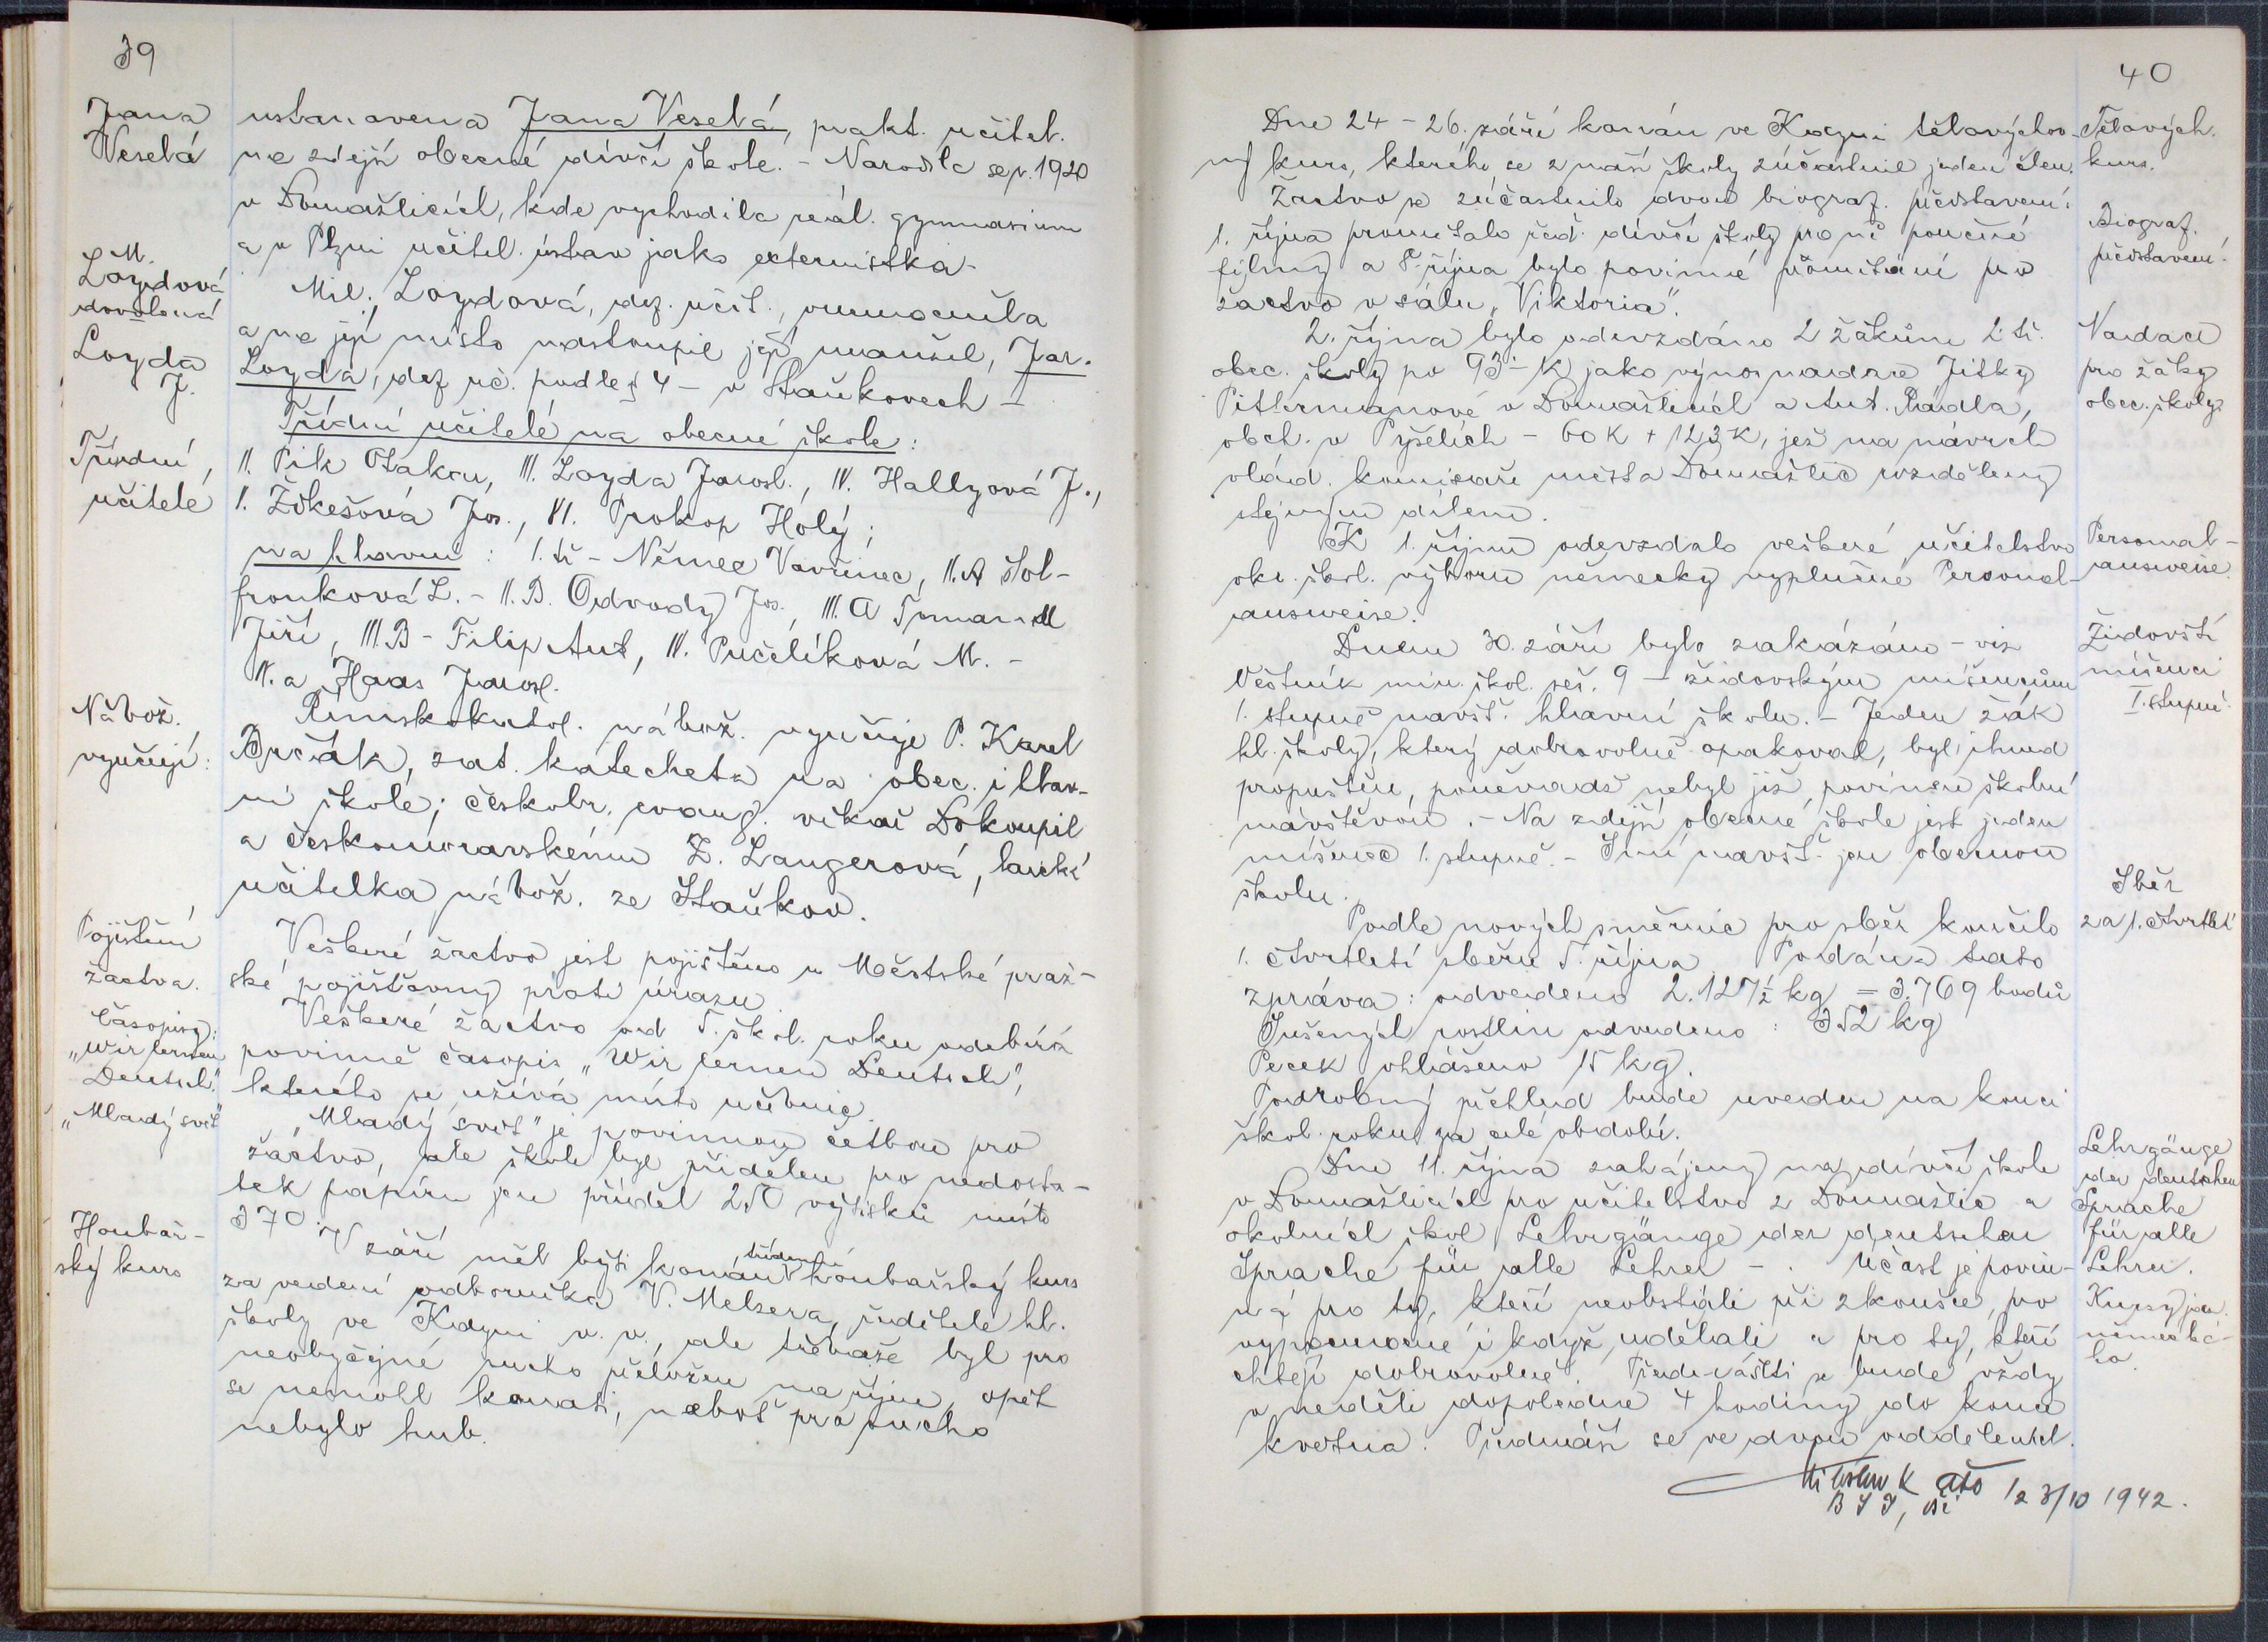 39
Jana
Veselá
ustanovena Jana Veselá, prakt. učitel.
na zdejší obecné dívčí škole. - Narodila se r. 1920
v Domažlicích, kde vychodila reál. gymnasium
a v Plzni učitel. ústav jako externistka.
M.
Loydová
dovolená
Loyda
J.
Mil. Loydová, def. učit., onemocněla
a na její místo nastoupil její manžel, Jar.
Loyda, def. uč. podle § 4 - v Staňkovech -
Třídní
učitelé
Třídní učitelé na obecné škole:
II. Pik Otakar, III. Loyda Jarosl., IV. Hallyová J.,
I. Žikešová Jos., VI. Prokop Holý;
na hlavní : I. tř - Němec Vavřinec, II. A Šol-
fronková L. - II. B. Odvody Jos., III. A
Jiří, III. B - Filip Ant, IV. Pučelíková M. -
IV. a Haas Jarosl.
Nábož.
vyučují:
Římskokatol. nábož. vyučuje P. Karel
Brčák, zat. katecheta na obec. i hlav-
ní škole; českobr. evang. vikář Dokoupil
a českomoravskému Z. Langerová, laická
učitelka nábož. ze Staňkov.
Pojištění
žactva.
Veškeré žactvo jest pojištěno u Městské praž-
ské pojišťovny proti úrazu
Časopisy:
„Wir lernen
Deutsch."
„Mladý svět"
Veškeré žactvo od t. škol. roku odebírá
povinně časopis „Wir lernen Deutsch",
kterého se užívá místo učebnic.
„Mladý svět" je povinnou četbou pro
žactvo, ale škole byl přidělen pro nedosta-
tek papíru jen příděl 250 výtisků místo
370.
Houbař-
ský kurs
V září měl býti konán třídenní houbařský kurs
za vedení odborníka V. Melzera, ředitele hl.
školy ve Kdyni v. v., ale třebaže byl pro
neobyčejné sucho přeložen na říjen, opět
se nemohl konati, neboť pro sucho
nebylo hub.
40
Dne 24 - 26. září konán ve Kdyni tělovýchov-
ný kurs, kterého se z naší školy zúčastnil jeden člen.
Tělových.
kurs.
Žactvo se zúčastnilo dvou biograf. představení:
1. října promítalo řed. dívčí školy pro ně poučné
filmy a 8. října bylo povinné promítání pro
žactvo v sálu „Viktoria".
Biograf.
představení.
2. října bylo odevzdáno 2 žákům 2. tř.
obec. školy po 93·- K jako výnos nadace Jitky
Pittermanové v Domažlicích a Ant. Radla,
obch. v Pyšelích - 60 K + 123 K, jež na návrch
vlád. komisaře města Domažlic rozděleny
stejným dílem.
Nadace
pro žáky
obec. školy.
K 1. říjnu odevzdalo veškeré učitelstvo
okr. škol. výboru německy vyplněné Personal-
ausweise.
Personal-
ausweise.
Dnem 30. září bylo zakázáno - viz
Věstník min. škol. seš. 9 - židovským míšencům
1. stupně navšt. hlavní školu. - Jeden žák
hl. školy, který dobrovolně opakoval, byl ihned
propuštěn, poněvadž nebyl již povinen školní
návštěvou. - Na zdejší obecné škole jest jeden
míšenec 1. stupně. - Smí navšt. jen obecnou
školu.
Židovští
míšenci
I. stupně.
Podle nových směrnic pro sběr končilo
1. čtvrtletí sběru 5. října Podána tato
zpráva: odvedeno 2.127½ kg = 3.769 bodů
Sušených rostlin odvedeno: 352 kg
Pecek ohlášeno 15 kg.
Podrobný přehled bude uveden na konci
škol. roku za celé období.
Sběr
za 1. čtvrtletí
Dne 11. října zahájeny na dívčí škole
v Domažlicích pro učitelstvo z Domažlic a
okolních škol Lehrgänge der deutschen
Sprache für alle Lehrer - . Účast je povin-
ná pro ty, kteří neobstáli při zkoušce, pro
výpomocné i když udělali a pro ty, kteří
chtějí dobrovolně. Předнášeti se bude vždy
v neděli dopoledne 4 hodiny do konce
května. Přednáší se ve dvou odděleních.
Lehrgänge
der deutschen
Sprache
für alle
Lehrer.
Kursy jaz.
německé-
ho.
12 3/10 1942.